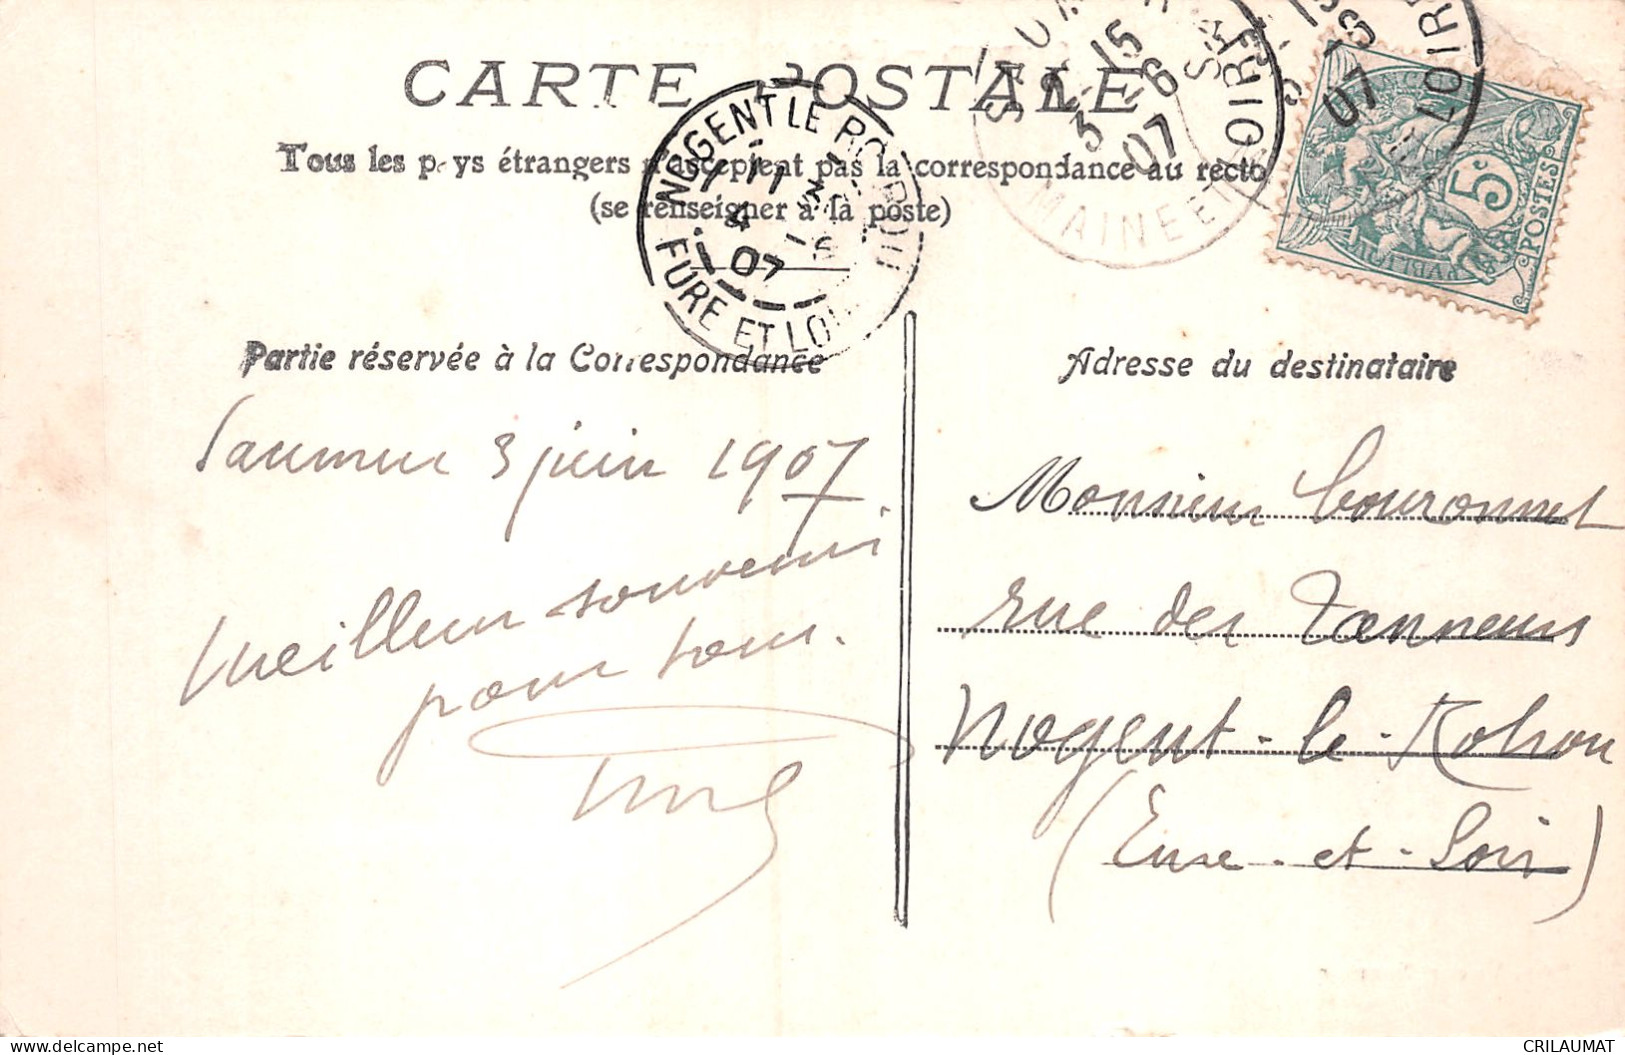 CARTE POSTALE
Tous les pays étrangers n'acceptent pas la correspondance au recto
(se renseigner à la poste)
NOGENT LE ROTROU
11
4 - 6
07
EURE ET LOIR
3 - 15
3 - 6
07
MAINE ET LOIRE
5c
POSTES
Partie réservée à la Correspondance
Adresse du destinataire
Saumur 3 juin 1907
Meilleur souvenir
pour tous.
Monsieur Couronnet
rue des Tanneurs
Nogent-le-Rotrou
(Eure-et-Loir)
CRILAUMAT